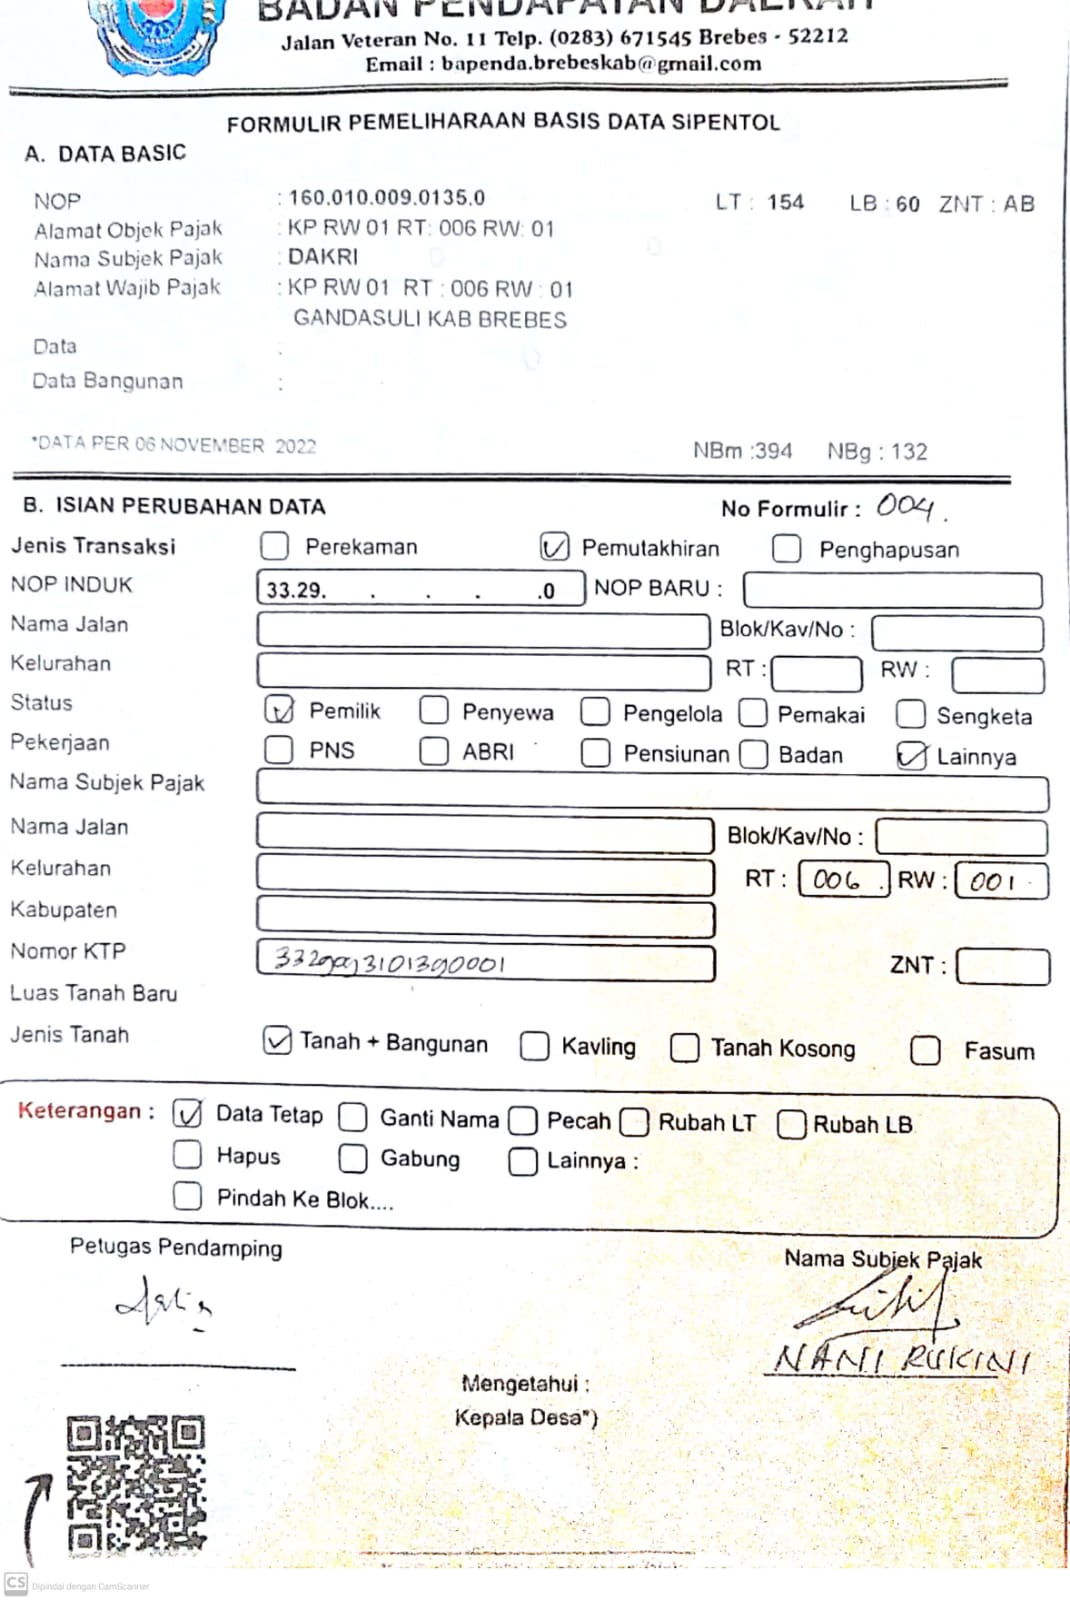 BADAN PENDAPATAN DAERAH
Jalan Veteran No. 11 Telp. (0283) 671545 Brebes - 52212
Email : bapenda.brebeskab@gmail.com
FORMULIR PEMELIHARAAN BASIS DATA SiPENTOL
A. DATA BASIC
NOP : 160.010.009.0135.0 LT : 154 LB : 60 ZNT : AB
Alamat Objek Pajak : KP RW 01 RT: 006 RW: 01
Nama Subjek Pajak : DAKRI
Alamat Wajib Pajak : KP RW 01 RT : 006 RW : 01
GANDASULI KAB BREBES
Data :
Data Bangunan :
*DATA PER 06 NOVEMBER 2022 NBm :394 NBg : 132
B. ISIAN PERUBAHAN DATA No Formulir : 004.
Jenis Transaksi Perekaman Pemutakhiran Penghapusan
NOP INDUK 33.29. . . . .0 NOP BARU :
Nama Jalan Blok/Kav/No :
Kelurahan RT : RW :
Status Pemilik Penyewa Pengelola Pemakai Sengketa
Pekerjaan PNS ABRI Pensiunan Badan Lainnya
Nama Subjek Pajak
Nama Jalan Blok/Kav/No :
Kelurahan RT : 006 RW : 001
Kabupaten
Nomor KTP ZNT :
Luas Tanah Baru
Jenis Tanah Tanah + Bangunan Kavling Tanah Kosong Fasum
Keterangan : Data Tetap Ganti Nama Pecah Rubah LT Rubah LB
Hapus Gabung Lainnya :
Pindah Ke Blok....
Petugas Pendamping Nama Subjek Pajak
NANI RUKINI
Mengetahui :
Kepala Desa*)
CS Dipindai dengan CamScanner